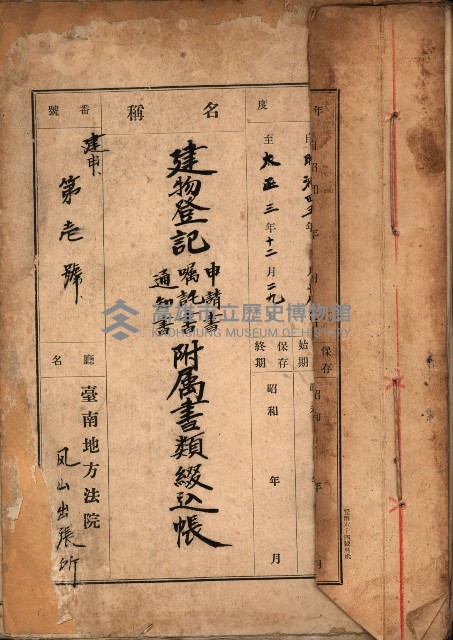 年
度
至大正三年十二月二九
保存
始期
昭和
年
月
保存
終期
昭和
年
月
名稱
建物登記
申請書
嘱託書
通知書
附属書類綴込帳
番號
建申
第壱號
廳名
臺南地方法院
凤山出張所
高雄市立歷史博物館
KAOHSIUNG MUSEUM OF HISTORY